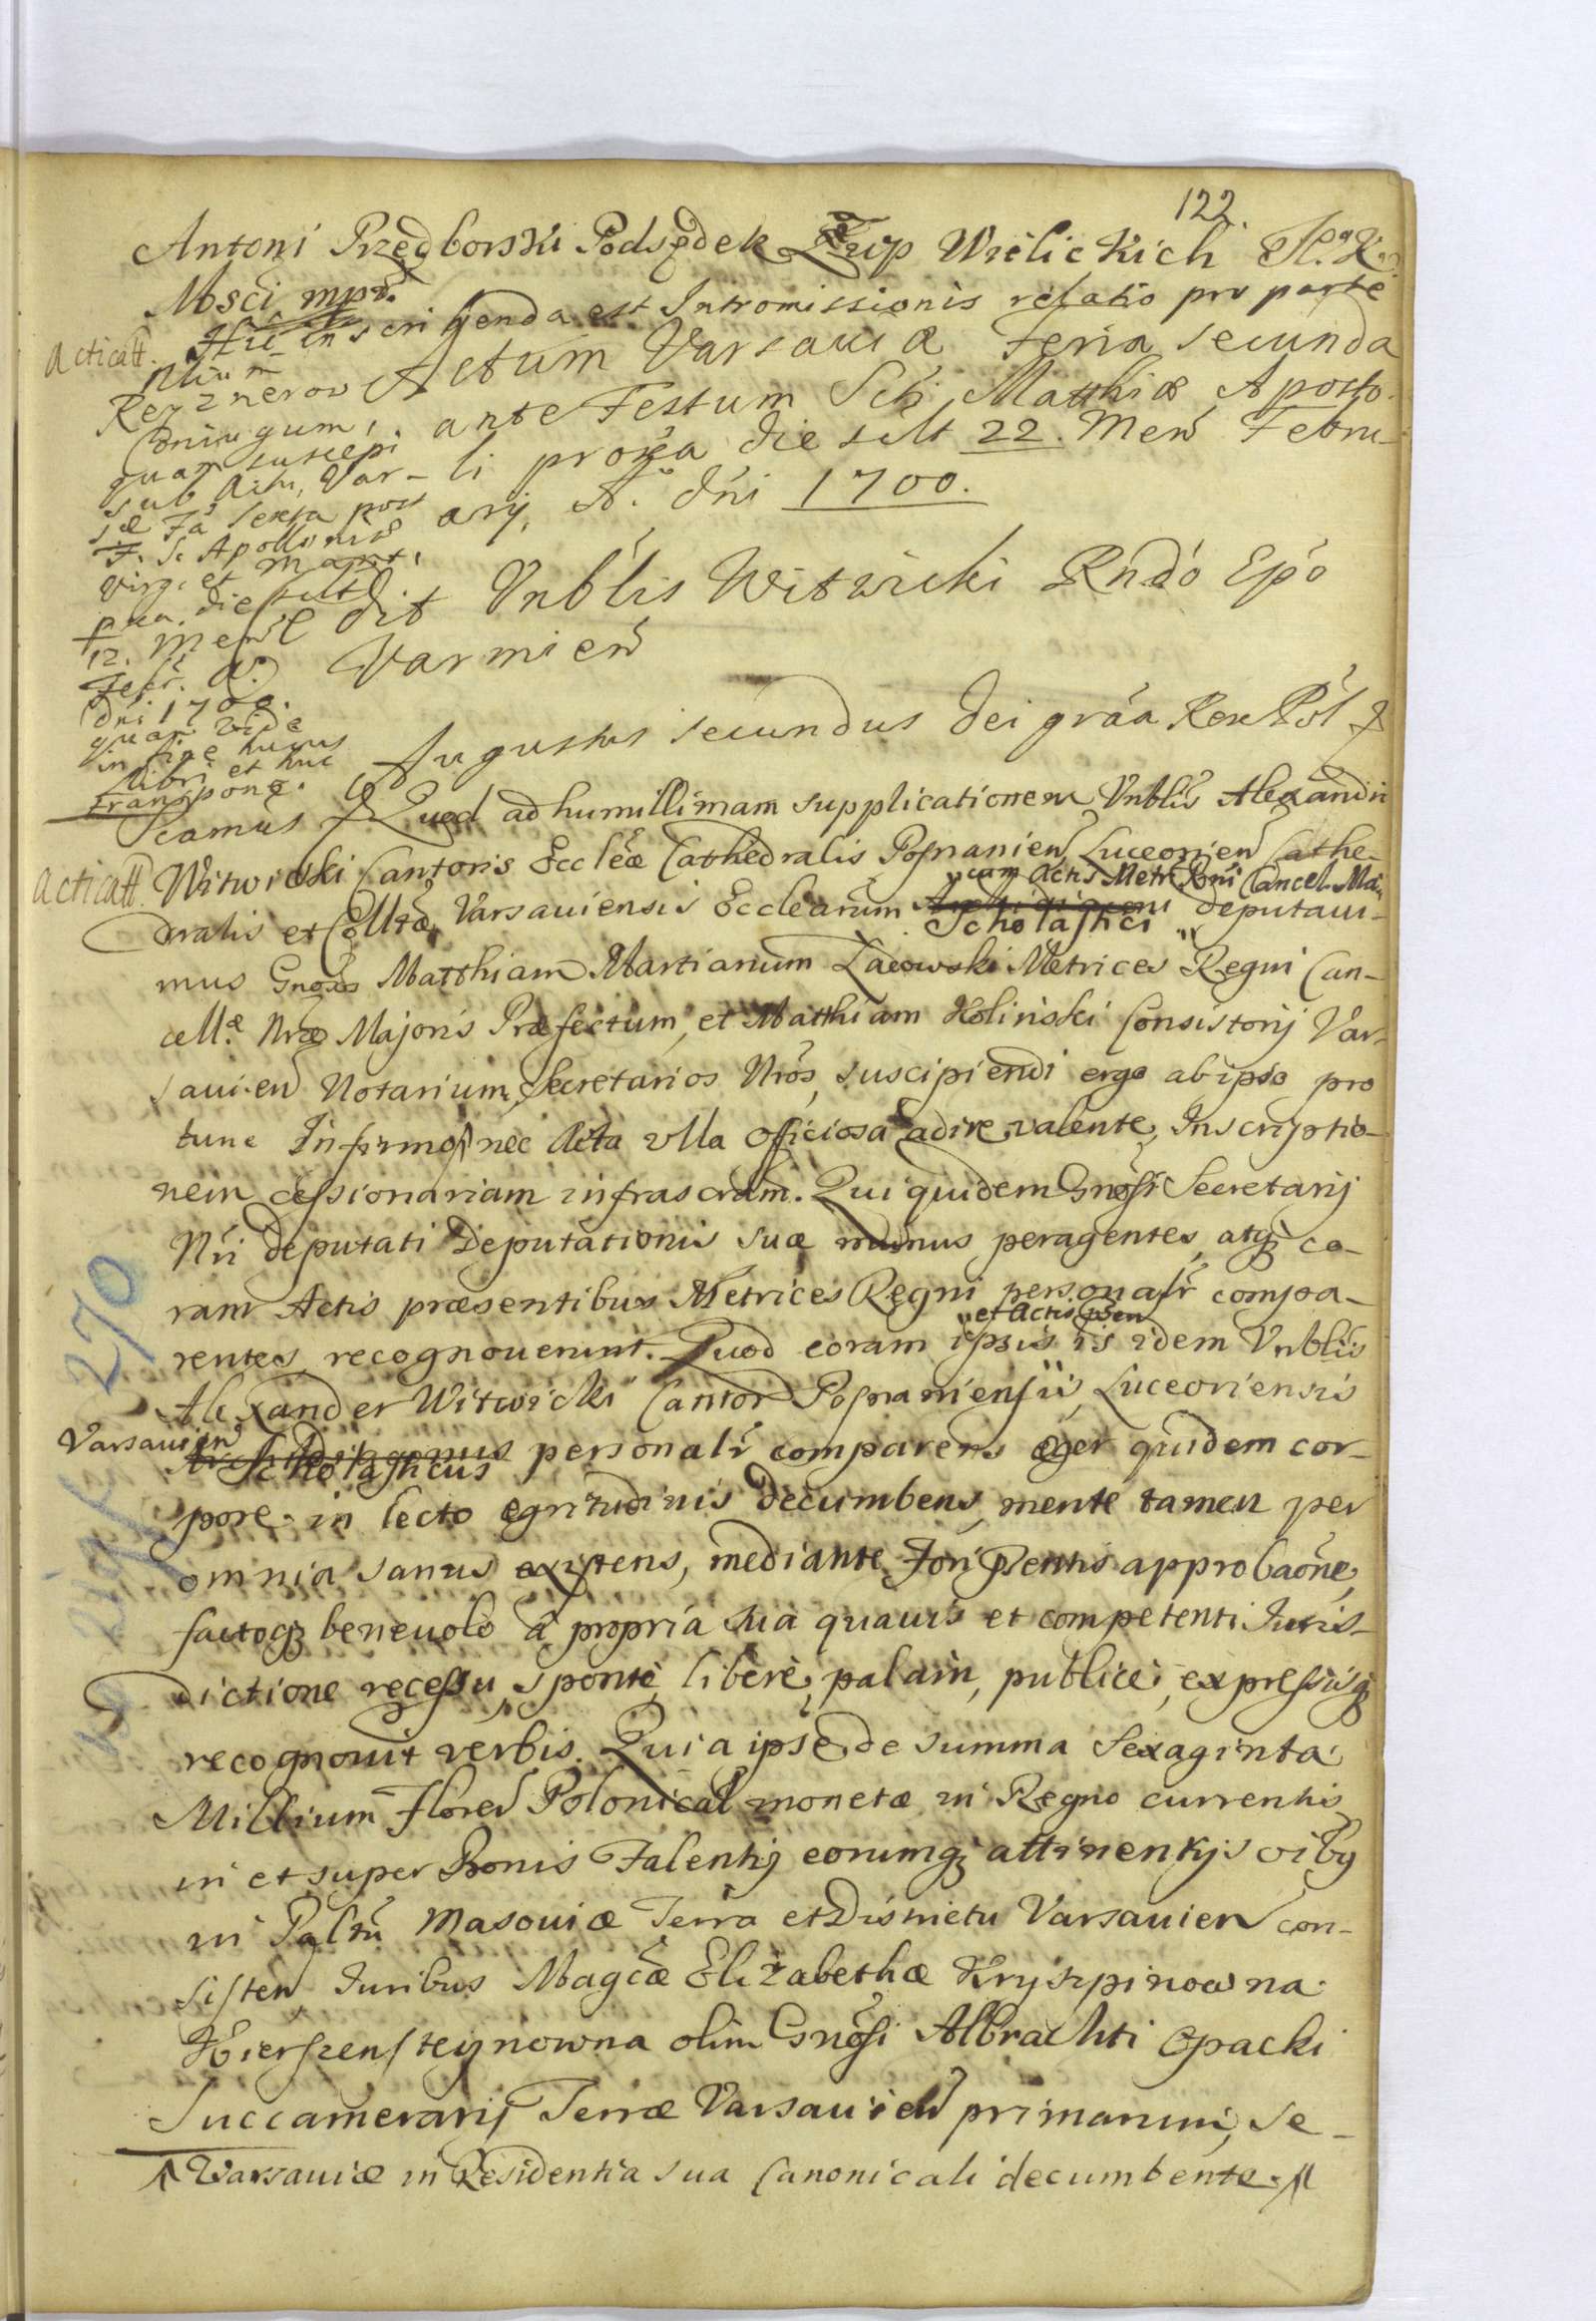 122.
Antoni Przedborski Podsędek Żup Wielickich JKr.
Msci mpr.
Hic inscribenda est Intromissionis relatio pro parte
Acticatt.
Nlium
Reyznerow
Coniugum,
quam suscepi
sub Actu, Var-
siæ Fa sexta post
F. S. Apollonia
Virg. et Mart.
pxa. die scilt
12. Mens
Febr. A.
Dni 1700.
quam vide
in fine huius
Libri et huc
transpone.
Actum Varsauiæ Feria secunda
ante Festum Sti Matthiæ Aposto-
li proxa die scilt 22. Mens Febru-
arij, A. dni 1700.
Cedit Vnblis Witwicki Rndo Epo
Varmien
Augustus secundus Dei grãa Rex Pol &
Acticatt.
Scamus & Quod ad humillimam supplicationem Vnblis Alexandri
Witwicki Cantoris Eccleæ Cathedralis Posnanien, Luceorien Cathe-
dralis et Colltæ Varsauiensis Ecclearum Archidiaconi Scholastici "cum Actis Metr Rni Cancel. Mai." deputaui-
mus Gnosos Matthiam Martianum Łacowski Metrices Regni Can-
cellæ Nræ Majoris Præfectum, et Matthiam Holinski Consistorij Var-
sauien Notarium, Secretarios Nros, suscipiendi ergo ab ipso pro
tunc Infirmo nec Acta vlla officiosa adire valente, Inscriptio-
nem cessionariam infrascram. Qui quidem Gnosi Secretarij
Nri deputati Deputationis suæ munus peragentes, atq co-
ram Actis præsentibus Metrices Regni personalr compa-
rentes recognouerunt. Quod coram ipsis "et Actis psen is idem Vnblis
Alexander Witwicki Cantor Posnaniensis, Luceoriensis
Varsauien Archidiaconus Scholasticus personalr comparens æger quidem cor-
pore in lecto egritudinis decumbens, mente tamen per
omnia sanus existens, mediante Fori Psentis approbaone,
factoq beneuolo à propria sua quauis et competenti Iuris-
dictione recessu, sponte, libere, palam, publice, expressisq
recognouit verbis. Quia ipse de summa Sexaginta
Millium floren Polonical monetæ in Regno currentis
in et super Bonis Falenty eorumq attinentijs oibus
in Paltu Masouiæ Terra et Districtu Varsauien con-
sisten Iuribus Magcæ Elizabethæ Kryszpinowna
Kierszensteynowna olim Gnosi Albrachti Opacki
Succamerarij Terræ Varsauien primarum, se-
Varsauiæ in Residentia sua Canonicali decumbente
270